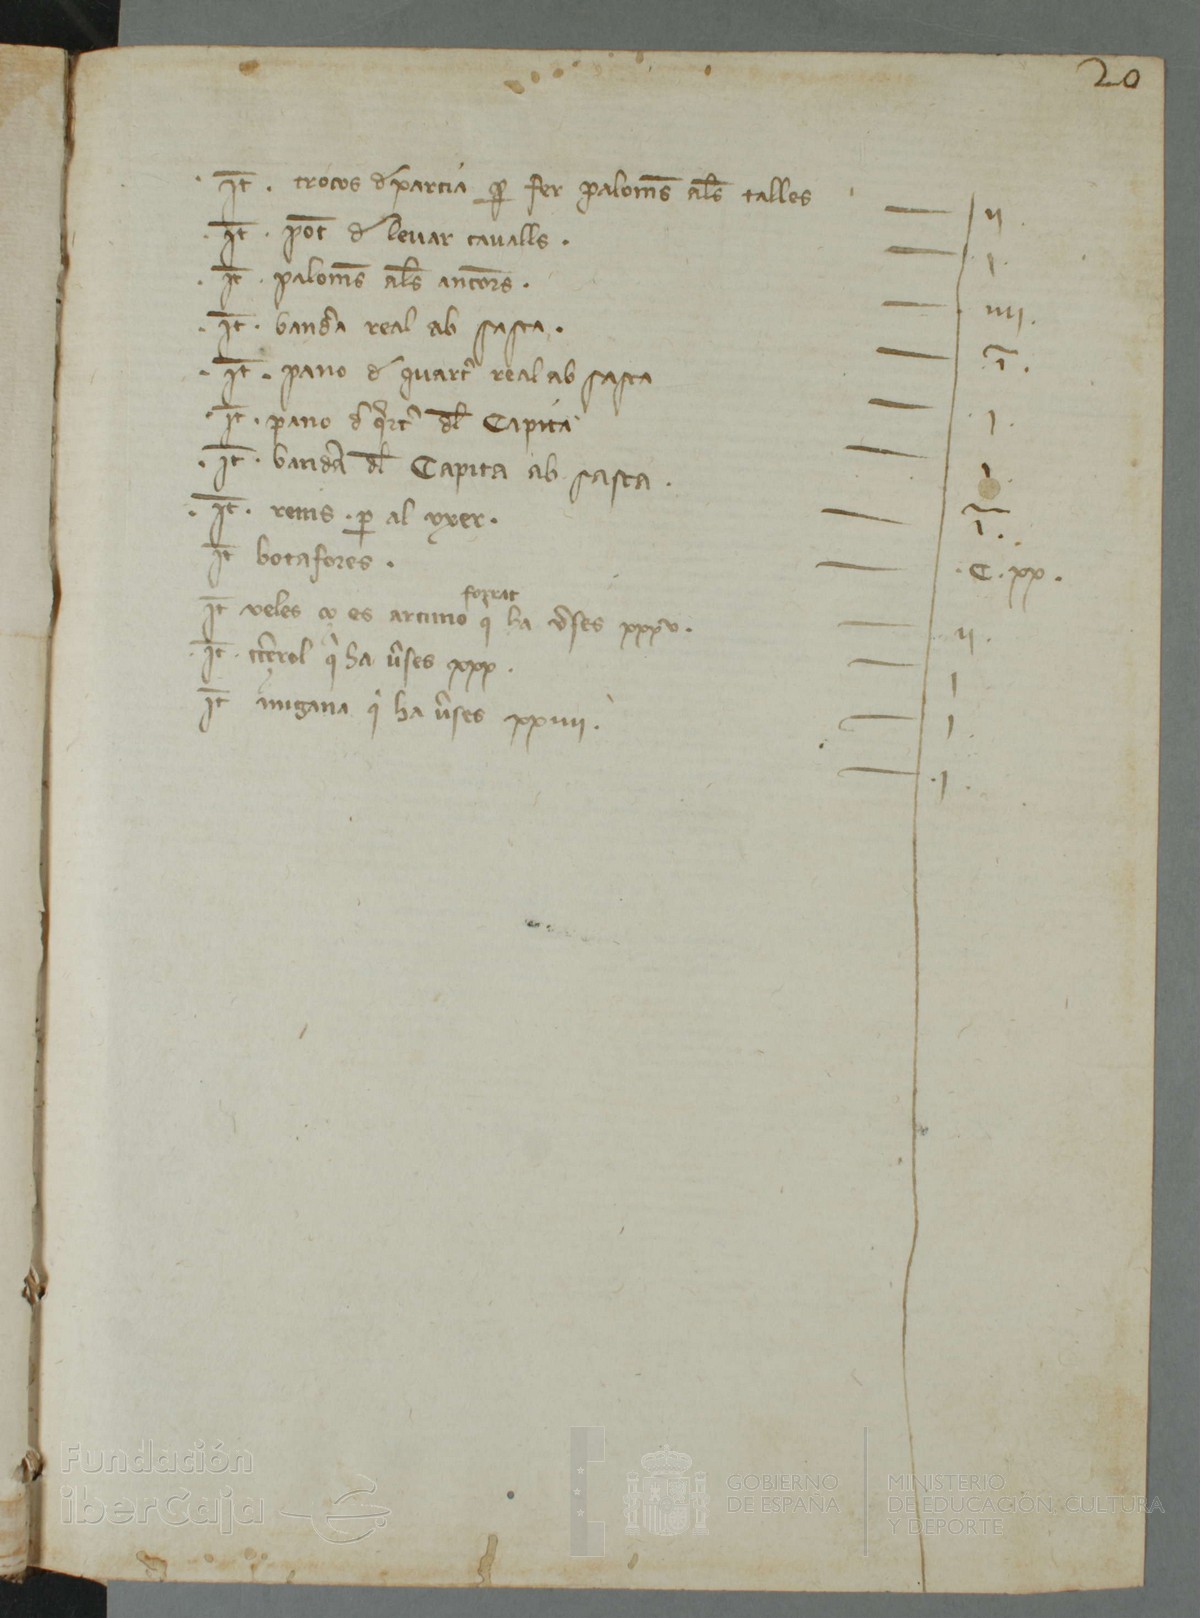 20
It. trocos d parcia p fer paloms als talles — ii
It. pot d leuar caualls. — i.
It. paloms als ancors. — iiii.
It. banda real ab sasta. — i.
It. pano d quart real ab sasta — i.
It. pano d qrt dl Capita — i.
It. banda dl Capita ab sasta. — i.
It. rems. p al uxer. — C. xx.
It botafores. — ii.
forrat
It veles es artimo q ha vses xxxv. — i
It. tcerol q ha vses xxx. — i.
It migana q ha vses xxviiii. — .i.
Fundación
iberCaja
GOBIERNO
DE ESPAÑA
MINISTERIO
DE EDUCACIÓN, CULTURA
Y DEPORTE